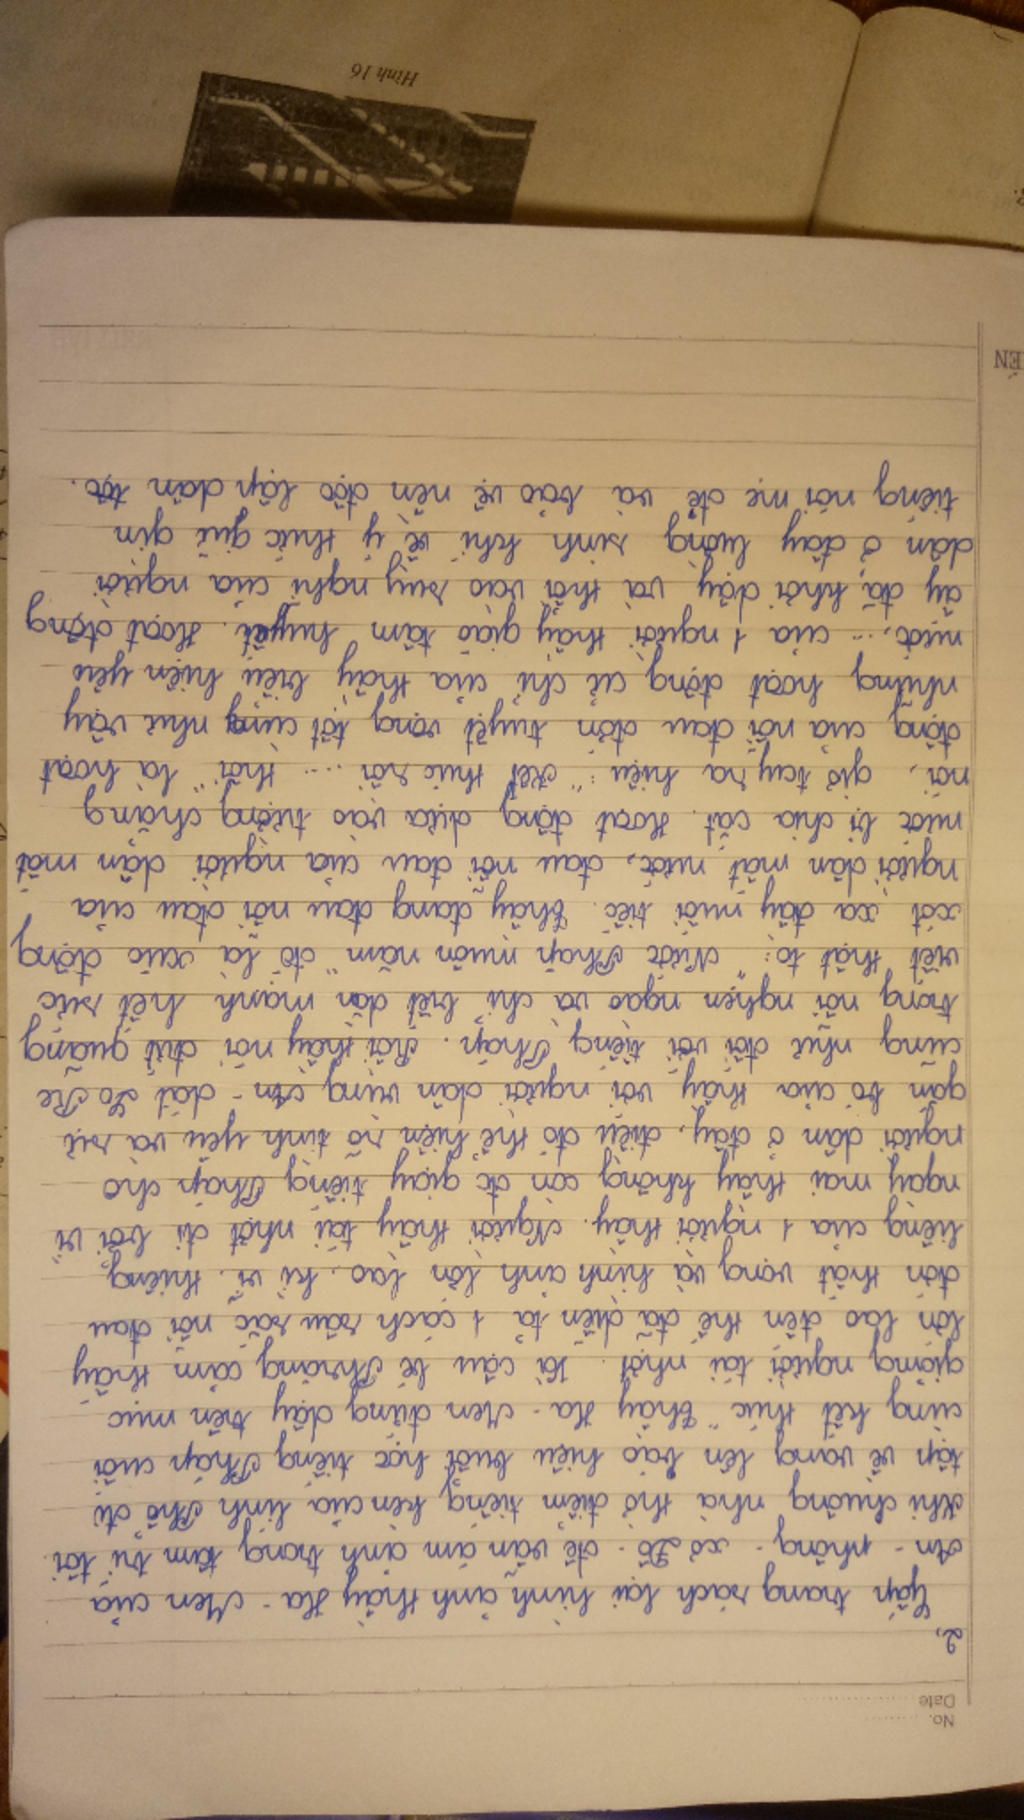 No.
Date
2,
Gấp trang sách lại hình ảnh thầy Ha-Men của
An-phông-xơ Đô-đê vẫn ám ảnh trong tâm trí tôi.
Khi chuông nhà thờ điểm tiếng kèn của lính Phổ đi
tập về vang lên báo hiệu buổi học tiếng Pháp cuối
cùng kết thúc "thầy Ha-Men đứng dậy trên mục
giảng người tái nhợt. Tả cậu bé Phrăng cảm thấy
lớn lao đến thế đã diễn tả 1 cách sâu sắc nỗi đau
đớn thất vọng và hình ảnh lớn lao, kì vĩ, thiêng
liêng của 1 người thầy. Người thầy tái nhợt đi bởi vì
ngay mai thầy không còn đc giạy tiếng Pháp cho
người dân ở đây, điều đó thể hiện rõ tình yêu và sự
gắn bó của thầy với người dân vùng An-dát Lo Re
cũng như đối với tiếng Pháp. Rồi thầy nói đứt quãng
trong nỗi nghẹn ngào và chỉ biết dằn mạnh hết sức
viết thật to: "Nước Pháp muôn năm" đó là xúc động
xót xa đầy nuối tiếc. Thầy đang đau nỗi đau của
người dân mất nước, đau nỗi đau của người dân mất
nước bị chia cắt. Hoạt động dựa vào tường chẳng
nói, giơ tay ra hiệu: "Kết thúc rồi ... thôi" là hoạt
động của nỗi đau đớn tuyệt vọng tột cùng như vậy
những hoạt động cử chỉ của thầy biểu hiện yêu
nước,... của 1 người thầy giáo tâm huyết. Hoạt động
ấy đã khơi dậy và thổi vào suy nghĩ của người
dân ở đây luồng sinh khí về ý thức giữ gìn
tiếng nói mẹ đẻ và bảo vệ nền độc lập dân tộc.
Hình 16